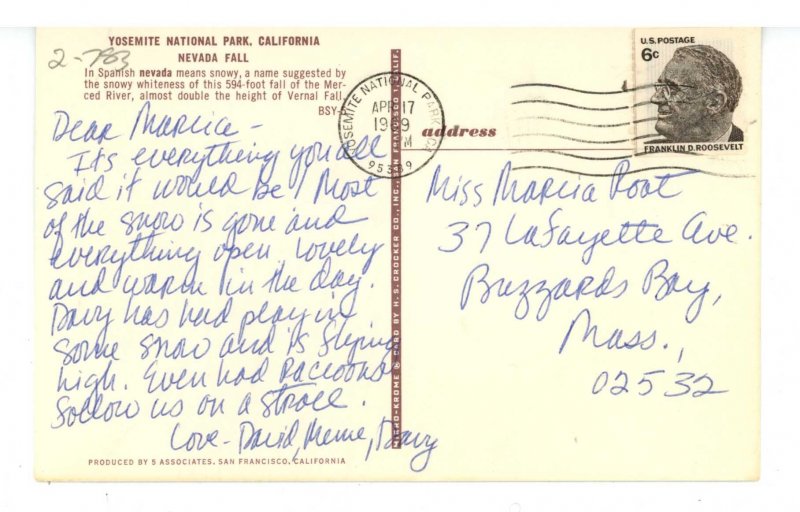 2-793
YOSEMITE NATIONAL PARK, CALIFORNIA
NEVADA FALL
In Spanish nevada means snowy, a name suggested by
the snowy whiteness of this 594-foot fall of the Mer-
ced River, almost double the height of Vernal Fall.
BSY-
Dear Marcia -
It's everything you all
said it would be! Most
of the snow is gone and
everything open. Lovely
and warm in the day.
Davy has had play in
some snow and is flying
high. Even had raccoons
follow us on a stroll.
Love - David, Meme, Davy
PRODUCED BY 5 ASSOCIATES, SAN FRANCISCO, CALIFORNIA
MIRRO-KROME ® CARD BY H. S. CROCKER CO., INC., SAN FRANCISCO 1, CALIF.
YOSEMITE NATIONAL PARK, CA
APR 17
M
95389
U.S. POSTAGE
6c
FRANKLIN D. ROOSEVELT
address
Miss Marcia Poat
37 LaFayette Ave.
Buzzards Bay,
Mass.,
02532